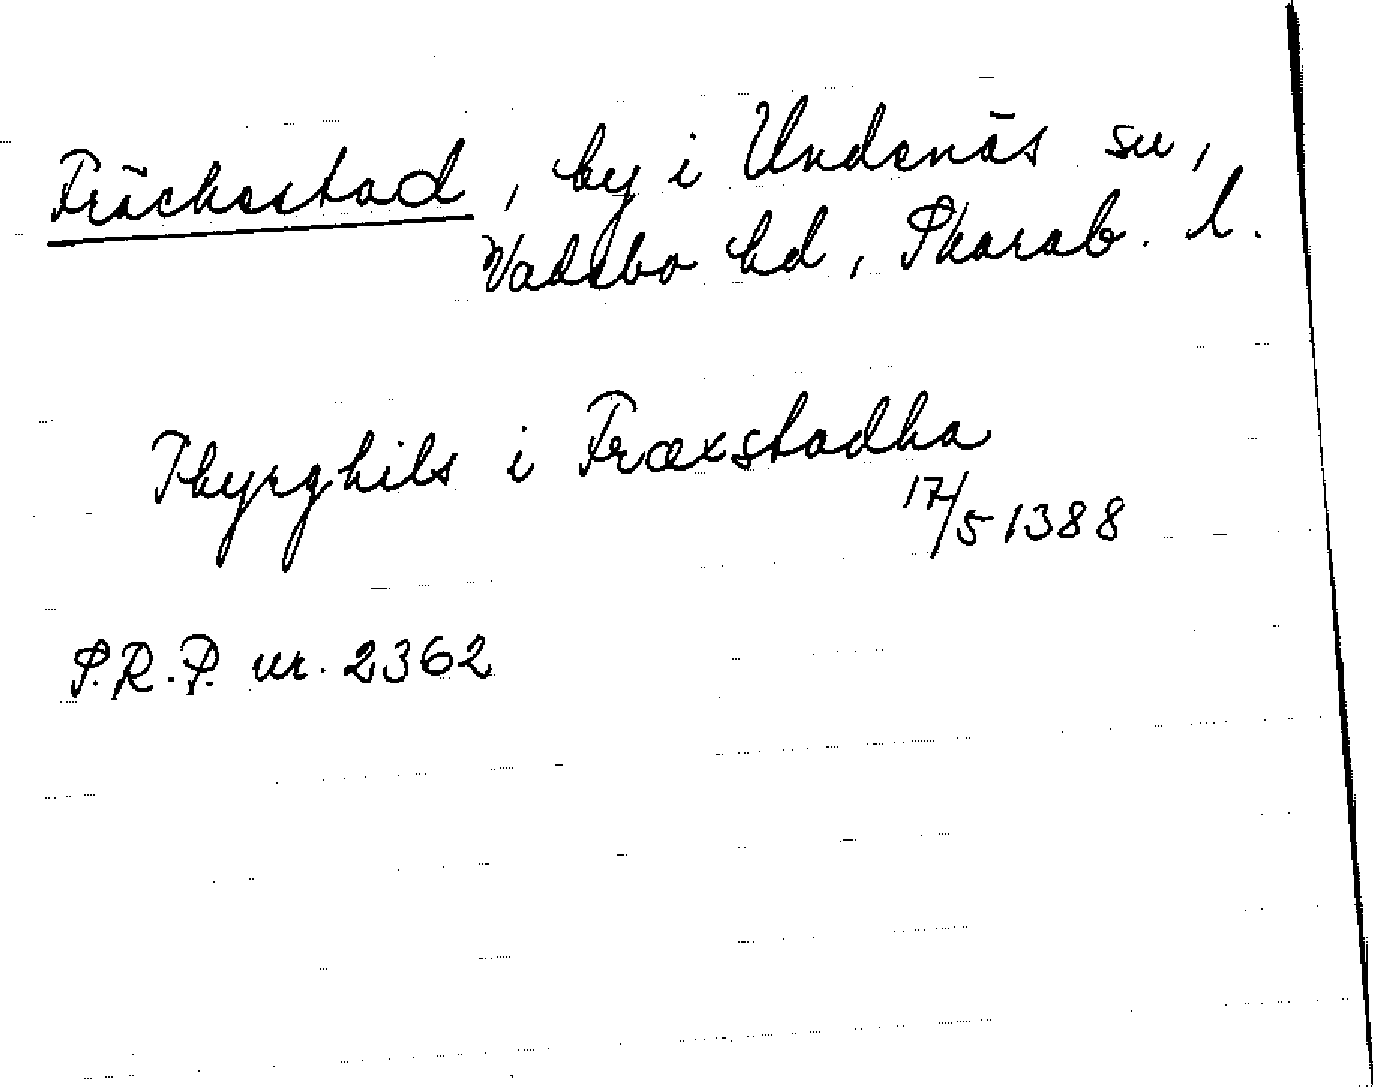 Fräcksstad, by i Undenäs sn,
Vadsbo hd, Skarab. l.
Thyrghils i Fræxstadha
17/5 1388
S.R.P. nr. 2362